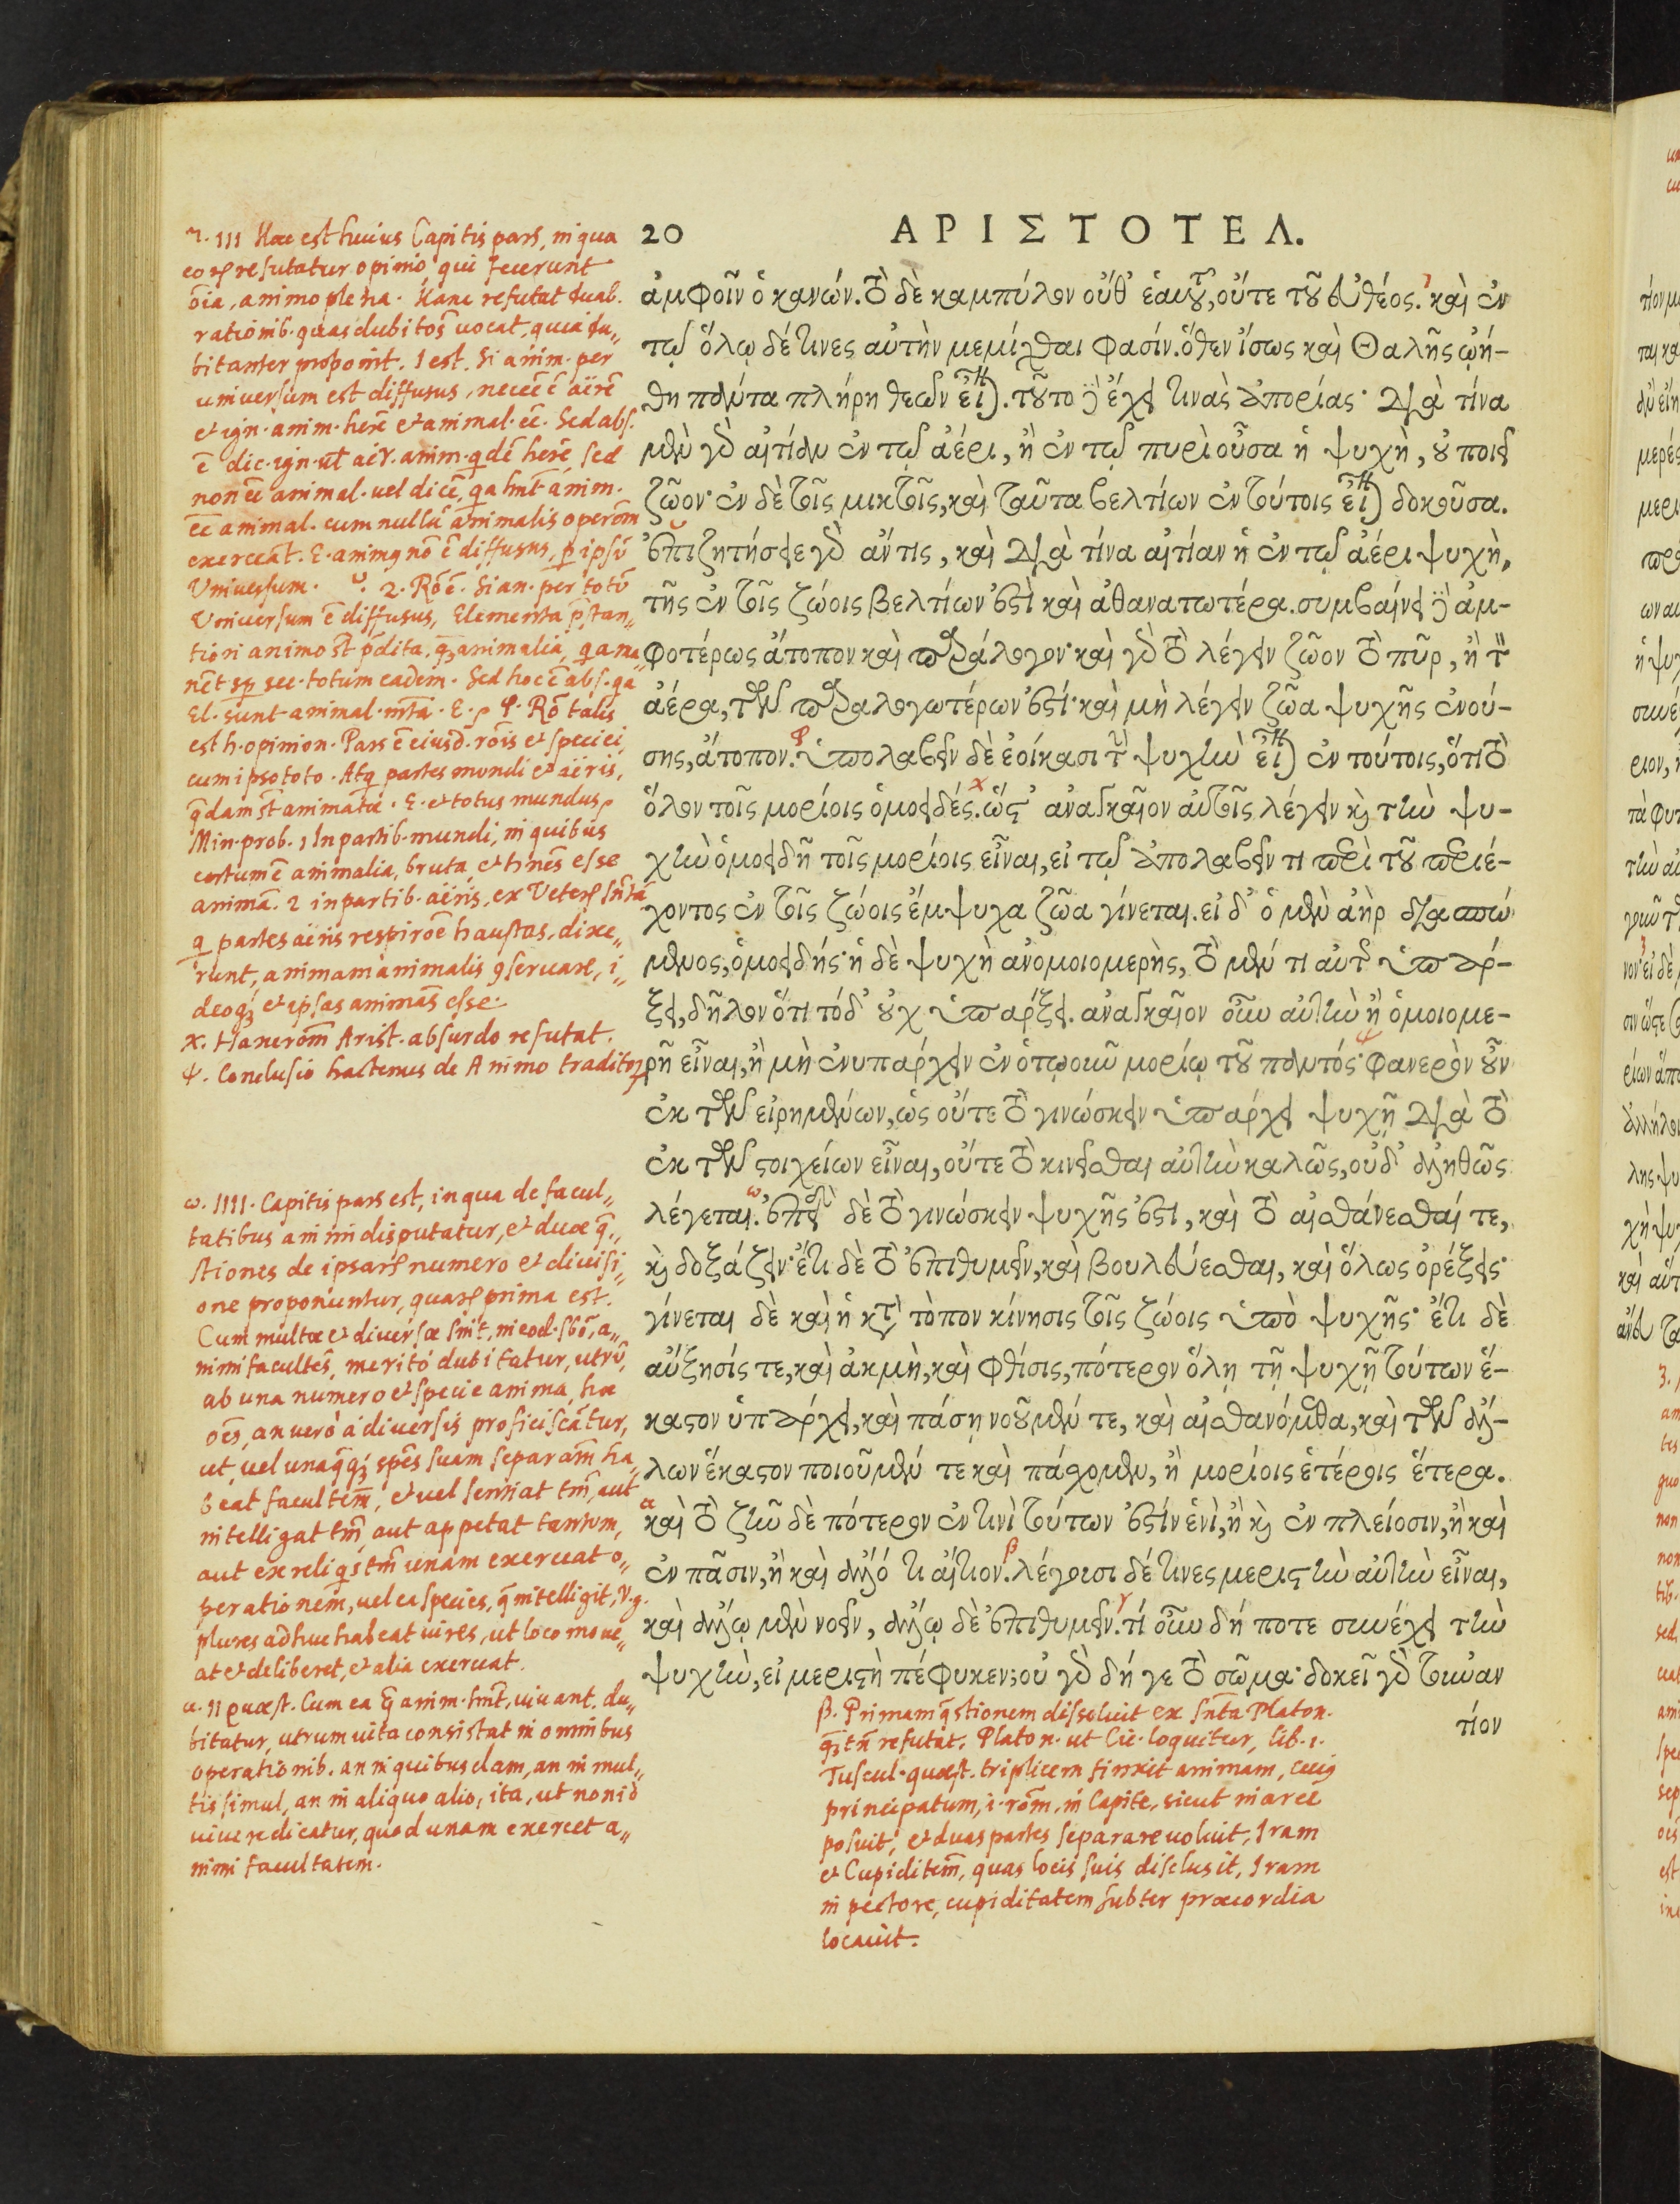 20 ΑΡΙΣΤΟΤΕΛ.
ἀμφοῖν ὁ κανών. τὸ δὲ καμπύλον οὔθ' ἑαυτοῦ, οὔτε τοῦ εὐθέος. καὶ ἐν
τῷ ὅλῳ δέ τινες αὐτὴν μεμίχθαι φασίν. ὅθεν ἴσως καὶ Θαλῆς ᾠή-
θη πάντα πλήρη θεῶν εἶναι. τοῦτο δ' ἔχει τινὰς ἀπορίας· διὰ τίνα
μὲν γὰρ αἰτίαν ἐν τῷ ἀέρι, ἢ ἐν τῷ πυρὶ οὖσα ἡ ψυχὴ, οὐ ποιεῖ
ζῶον· ἐν δὲ τοῖς μικτοῖς, καὶ ταῦτα βελτίων ἐν τούτοις εἶναι δοκοῦσα.
ἐπιζητήσειε γὰρ ἄν τις, καὶ διὰ τίνα αἰτίαν ἡ ἐν τῷ ἀέρι ψυχὴ,
τῆς ἐν τοῖς ζώοις βελτίων ἐστὶ καὶ ἀθανατωτέρα. συμβαίνει δ' ἀμ-
φοτέρως ἄτοπον καὶ παράλογον· καὶ γὰρ τὸ λέγειν ζῶον τὸ πῦρ, ἢ τὸν
ἀέρα, τῶν παραλογωτέρων ἐστί· καὶ μὴ λέγειν ζῶα ψυχῆς ἐνού-
σης, ἄτοπον. ὑπολαβεῖν δὲ ἐοίκασι τὴν ψυχὴν εἶναι ἐν τούτοις, ὅτι τὸ
ὅλον τοῖς μορίοις ὁμοειδές. ὥςτ' ἀναγκαῖον αὐτοῖς λέγειν καὶ τὴν ψυ-
χὴν ὁμοειδῆ τοῖς μορίοις εἶναι, εἰ τῷ ἀπολαβεῖν τι περὶ τοῦ περιέ-
χοντος ἐν τοῖς ζώοις ἔμψυχα ζῶα γίνεται. εἰ δ' ὁ μὲν ἀὴρ διασπώ
μενος, ὁμοειδής· ἡ δὲ ψυχὴ ἀνομοιομερὴς, τὸ μέν τι αὐτῆς ὑπάρ-
ξει, δῆλον ὅτι τόδ' οὐχ ὑπαρξει. ἀναγκαῖον οὖν αὐτὴν ἢ ὁμοιομε-
ρῆ εἶναι, ἢ μὴ ἐνυπάρχειν ἐν ὁτῳοῦν μορίῳ τοῦ παντός· φανερὸν οὖν
ἐκ τῶν εἰρημένων, ὡς οὔτε τὸ γινώσκειν ὑπάρχει ψυχῇ διὰ τὸ
ἐκ τῶν στοιχείων εἶναι, οὔτε τὸ κινεῖσθαι αὐτὴν καλῶς, οὐδ' ἀληθῶς
λέγεται. ἐπεὶ δὲ τὸ γινώσκειν ψυχῆς ἐστι, καὶ τὸ αἰσθάνεσθαί τε,
καὶ δοξάζειν· ἔτι δὲ τὸ ἐπιθυμεῖν, καὶ βουλεύεσθαι, καὶ ὅλως ὀρέξεις·
γίνεται δὲ καὶ ἡ κατὰ τόπον κίνησις τοῖς ζώοις ὑπὸ ψυχῆς· ἔτι δὲ
αὔξησίς τε, καὶ ἀκμὴ, καὶ φθίσις, πότερον ὅλῃ τῇ ψυχῇ τούτων ἕ-
καστον ὑπάρχει, καὶ πάσῃ νοοῦμέν τε, καὶ αἰσθανόμεθα, καὶ τῶν ἄλ-
λων ἕκαστον ποιοῦμέν τε καὶ πάσχομεν, ἢ μορίοις ἑτέροις ἕτερα.
καὶ τὸ ζῆν δὲ πότερον ἐν τινὶ τούτων ἐστὶν ἑνὶ, ἢ καὶ ἐν πλείοσιν, ἢ καὶ
ἐν πᾶσιν, ἢ καὶ ἄλλό τι αἴτιον. λέγουσι δέ τινες μεριστὴν αὐτὴν εἶναι,
καὶ ἄλλῳ μὲν νοεῖν, ἄλλῳ δὲ ἐπιθυμεῖν. τί οὖν δή ποτε συνέχει τὴν
ψυχὴν, εἰ μεριστὴ πέφυκεν; οὐ γὰρ δή γε τὸ σῶμα· δοκεῖ γὰρ τοὐναν
τίον
τ. III Haec est huius Capitis pars, in qua
eoꝝ refutatur opinio, qui fecerunt
oīa, animo plena. Hanc refutat duab.
rationib. quas dubitoēs uocat, quia du„
bitanter proponit. 1 est. Si anim. per
uniuersum est diffusus, necēē ē aërē
et ign. anim. herē et animal. eē. Sed abs.
ē dic. ign. ut aër. anim. qdē herē, sed
non eē animal. uel dicē, qa hnt anim.
eē animal. cum nullū animalis operōm
exerceāt. E. animꝯ nō ē diffusus, p ipsū
Vniuersum. υ. 2. Rō ē. Si an. per totū
Vniuersum ē diffusus, Elementa pstan„
tiori animo st pdita, qꝫ animalia, qa ma
est h. opinion. Pars ē eiusd. rōis et speciei,
cum ipso toto. Atq partes mundi et aëris,
qdam st animata. E. et totus mundus.
Min. prob. 1 In partib. mundi, in quibus
certum ē animalia, bruta, et hīnēs esse
animā. 2 in partib. aëris, ex Veteꝝ sntā
q partes aëris respirōe haustas, dixe„
runt, animam animalis ꝯseruare, i„
deoqꝫ et ipsas animas esse.
χ. Hanc rōm Arist. absurdo refutat.
ψ. Conclusio hactenus de Animo traditoꝝ
ω. IIII. Capitis pars est, in qua de facul„
tatibus animi disputatur, et duae q„
stiones de ipsaꝝ numero et diuisi„
one proponuntur, quaꝝ prima est.
Cum multae et diuersae sint, in eod. sbō, a„
nimi facultēs, merito dubitatur, utrū,
ab una numero et specie anima, hae
oēs, an uerò à diuersis proficiscātur,
ut, uel unaqqꝫ spēs suam separām ha
beat facultēm, et uel sentiat tm, aut
intelligat tm, aut appetat tantum,
aut ex reliqis tm unam exerceat o„
perationem, uel ea species, q intelligit, v.g.
plures adhuc habeat uires, ut loco moue„
at et deliberet, et alia exerceat.
α. II quaest. Cum ea q anim. hnt, uiuant, du„
bitatur, utrum uita consistat in omnibus
operationib. an in quibusdam, an in mul„
tis simul, an in aliquo alio, ita, ut non id
uiuere dicatur, quod unam exercet a„
nimi facultatem.
β. Primam qstionem dissoluit ex sntā Platon.
qꝫ tn refutat. Platon. ut Cic. loquitur, lib. 1.
Tuscul. quaest. triplicem finxit animam, cuiꝯ
principatum, i. rōm, in Capite, sicut in arce
posuit, et duas partes separare uoluit, Iram
et Cupiditēm, quas locis suis disclusit, Iram
in pectore, cupiditatem subter praecordia
locauit.